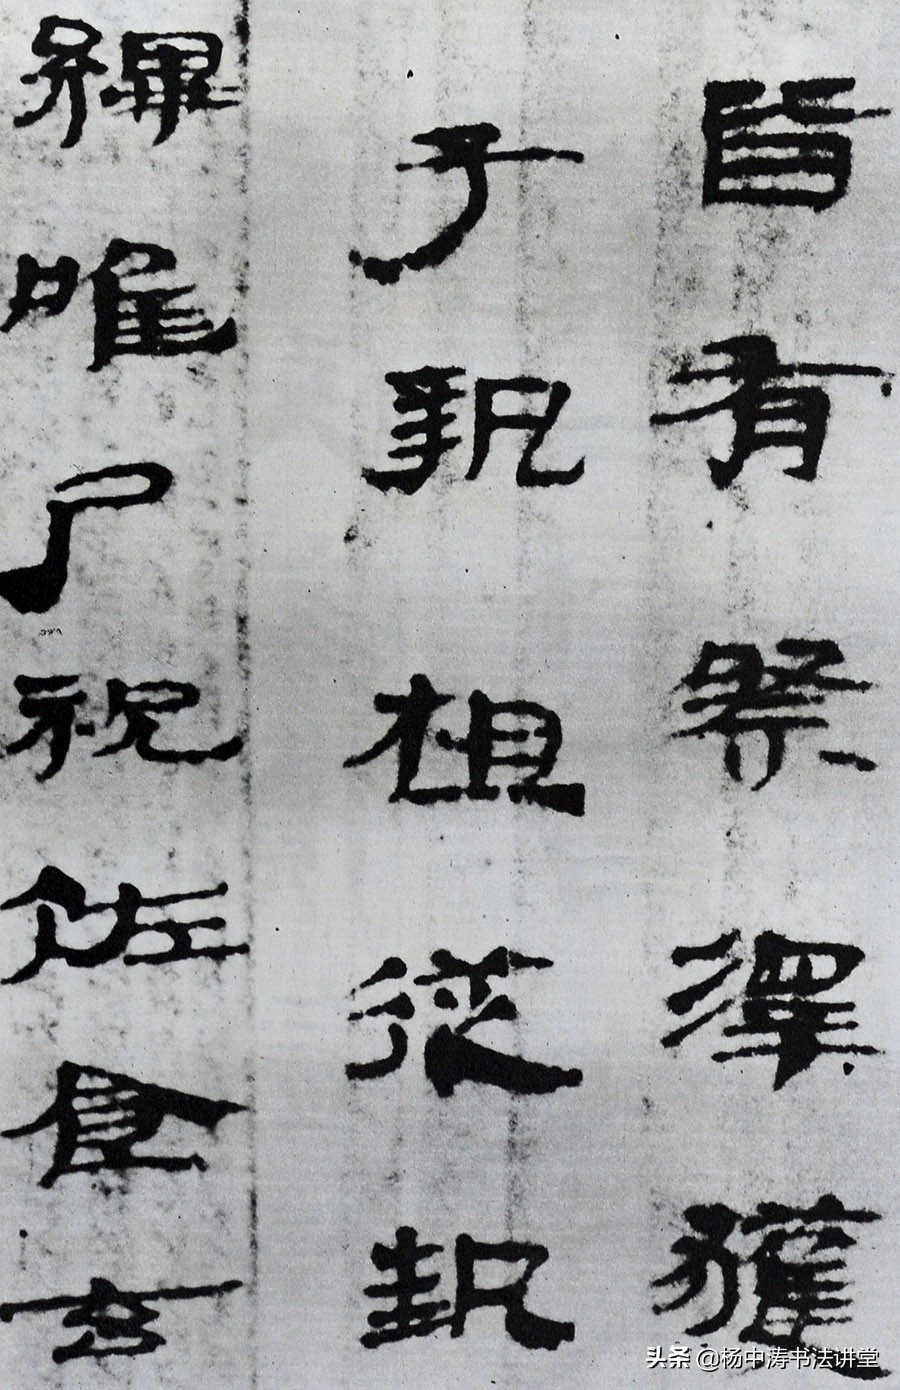 皆有祭澤獲
于執柤從執
觶唯尸祝佐食玄
头条 @杨中涛书法讲堂